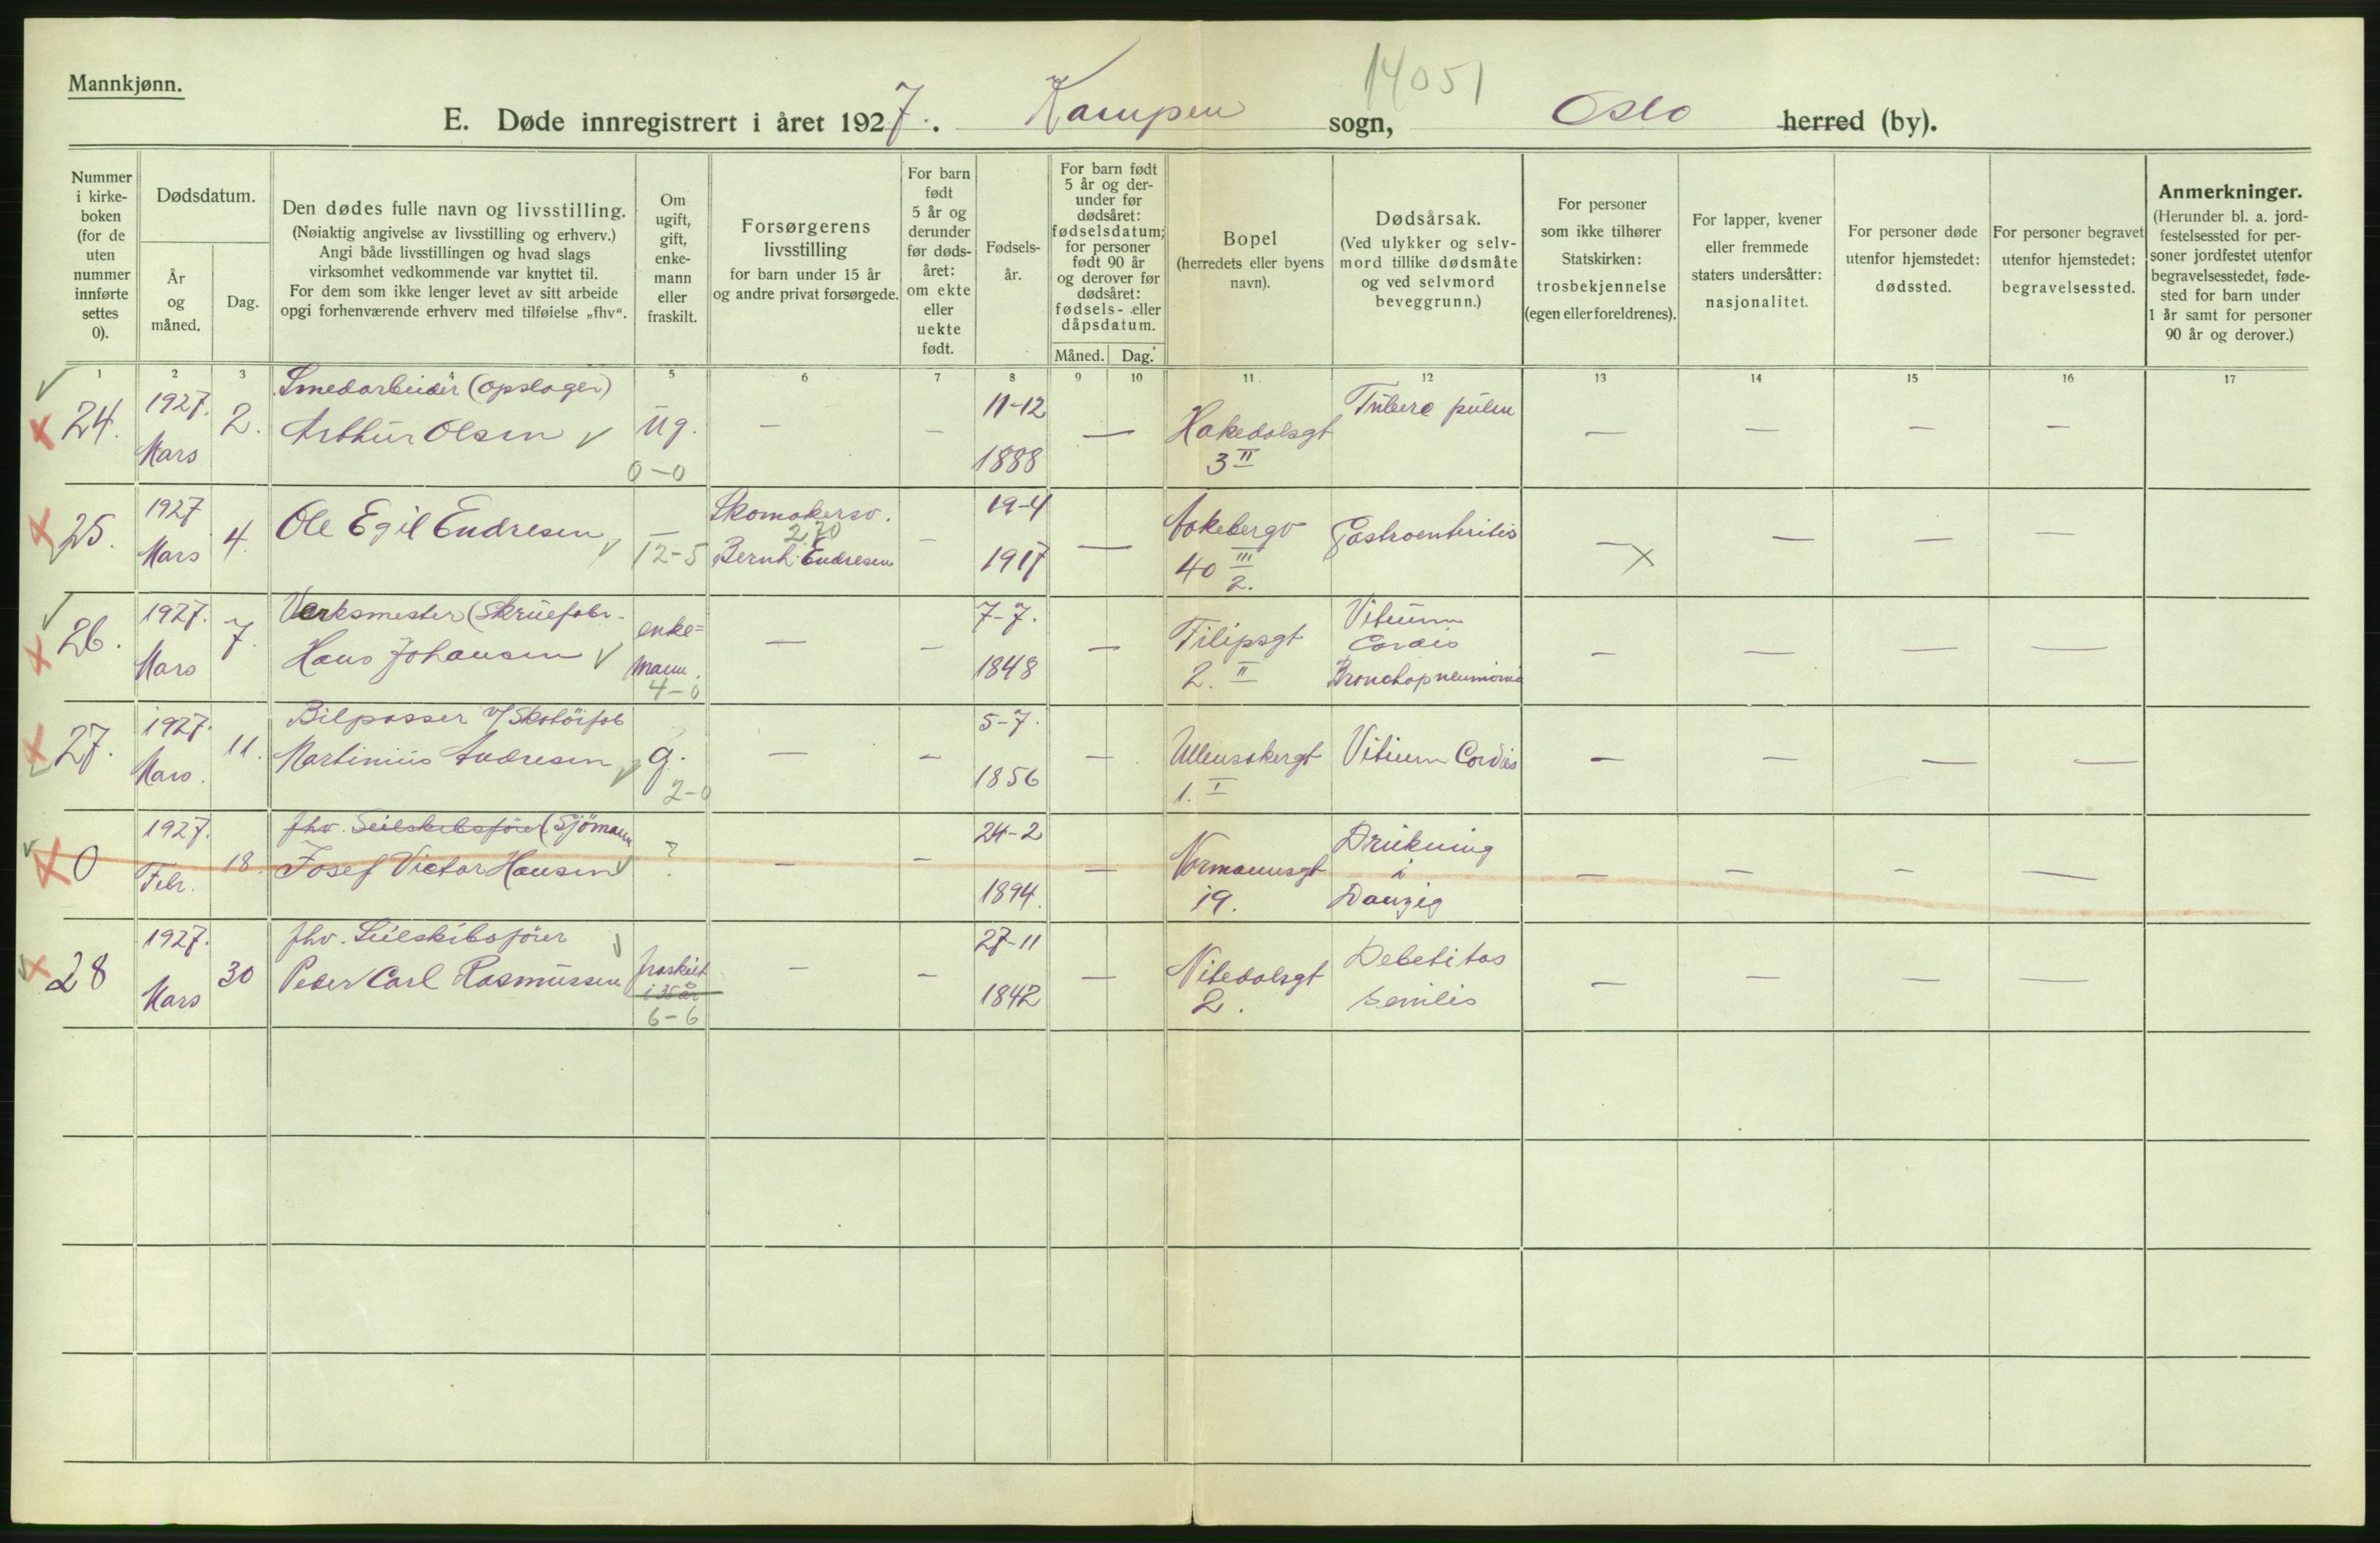 Mannkjønn.
14051
E. Døde innregistrert i året 1927. Kampen sogn, Oslo herred (by).
Nummer i kirke-boken (for de uten nummer innførte settes 0).
Dødsdatum.
År og måned.
Dag.
Den dødes fulle navn og livsstilling.
(Nøiaktig angivelse av livsstilling og erhverv.)
Angi både livsstillingen og hvad slags
virksomhet vedkommende var knyttet til.
For dem som ikke lenger levet av sitt arbeide
opgi forhenværende erhverv med tilføielse „fhv“.
Om ugift, gift, enke-mann eller fraskilt.
Forsørgerens livsstilling
for barn under 15 år
og andre privat forsørgede.
For barn født 5 år og derunder før døds-året: om ekte eller uekte født.
Fødsels-år.
For barn født 5 år og der-under før dødsåret: fødselsdatum; for personer født 90 år og derover før dødsåret: fødsels- eller dåpsdatum.
Måned. Dag.
Bopel
(herredets eller byens navn).
Dødsårsak.
(Ved ulykker og selv-mord tillike dødsmåte og ved selvmord beveggrunn.)
For personer som ikke tilhører Statskirken: trosbekjennelse (egen eller foreldrenes).
For lapper, kvener eller fremmede staters undersåtter: nasjonalitet.
For personer døde utenfor hjemstedet: dødssted.
For personer begravet utenfor hjemstedet: begravelsessted.
Anmerkninger.
(Herunder bl. a. jord-festelsessted for per-soner jordfestet utenfor begravelsesstedet, føde-sted for barn under 1 år samt for personer 90 år og derover.)
1 2 3 5 6 7 8 9 10 11. 12 13 14 15 16 17
24. 1927. Mars 2. Smedarbeider (opslager) Arthur Olsen ug. 0-0 — — 11-12 1888 — Hakedalsgt 3 II Tuberc pulm — — — —
25. 1927 Mars 4. Ole Egil Endresen — 12-5 Skomakersv. 2.70 Bernh. Endresen — 19-4 1917 — Aakebergv 40 III 2. Gastroenteritis — — — —
26. 1927. Mars 7. Verksmester (Skruefabr. Hans Johansen enke= mann. 4-0 — — 7-7. 1848 — Filipsgt 2. II Vitium Cordis Bronchopneumonia — — — —
27. 1927. Mars. 11. Bilpasser v/ Skotöifab Martinius Andresen g. 2-0 — — 5-7. 1856 — Ullensakergt 1. I Vitium Cordis — — — —
0 1927. Febr. 18. fhv. Seilskibsförer (Sjömann Josef Victor Hansen ? — — 24-2 1894. — Normannsgt 19. Drukning i Danzig — — — —
28 1927. Mars 30 fhv. Seilskibsförer Peder Carl Rasmussen fraskilt i 35 år 6-6 — — 27-11 1842 — Nitedalsgt 2. Debetitas senilis — — — —